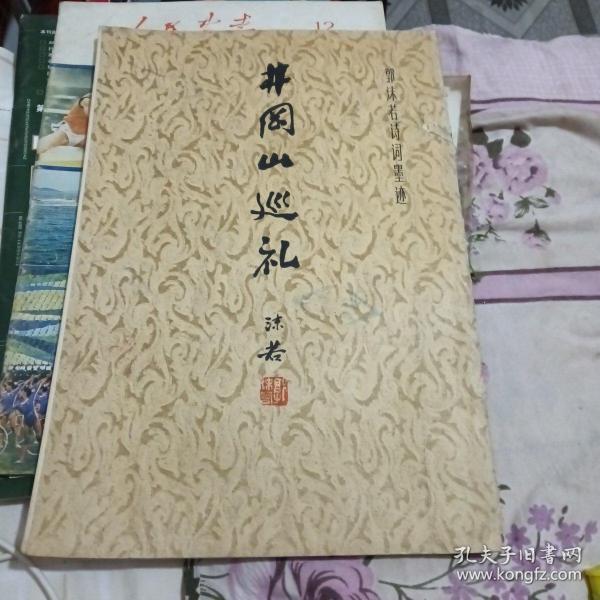 郭沫若诗词墨迹
井岡山巡礼
沫若
12
孔夫子旧书网
www.kongfz.com